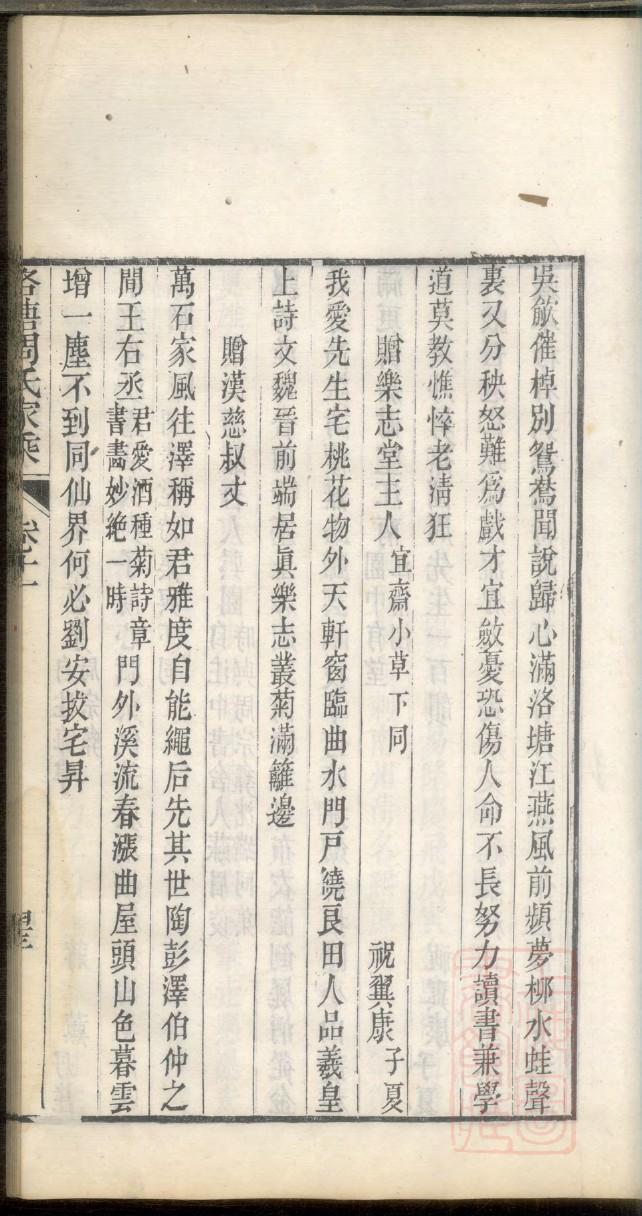 吳歈催棹別鴛鴦聞說歸心滿洛塘江燕風前頻夢柳水蛙聲
裏又分秧怒難爲戲才宜斂憂恐傷人命不長努力讀書兼學
道莫教憔悴老淸狂
贈樂志堂主人宜齋小草下同 祝翼康子夏
我愛先生宅桃花物外天軒窗臨曲水門戶繞良田人品羲皇
上詩文魏晉前端居眞樂志叢菊滿籬邊
贈漢慈叔丈
萬石家風往澤稱如君雅度自能繩后先其世陶彭澤伯仲之
間王右丞君愛酒種菊詩章書畫妙絕一時門外溪流春漲曲屋頭山色暮雲
增一塵不到同仙界何必劉安拔宅昇
洛塘周氏家乘